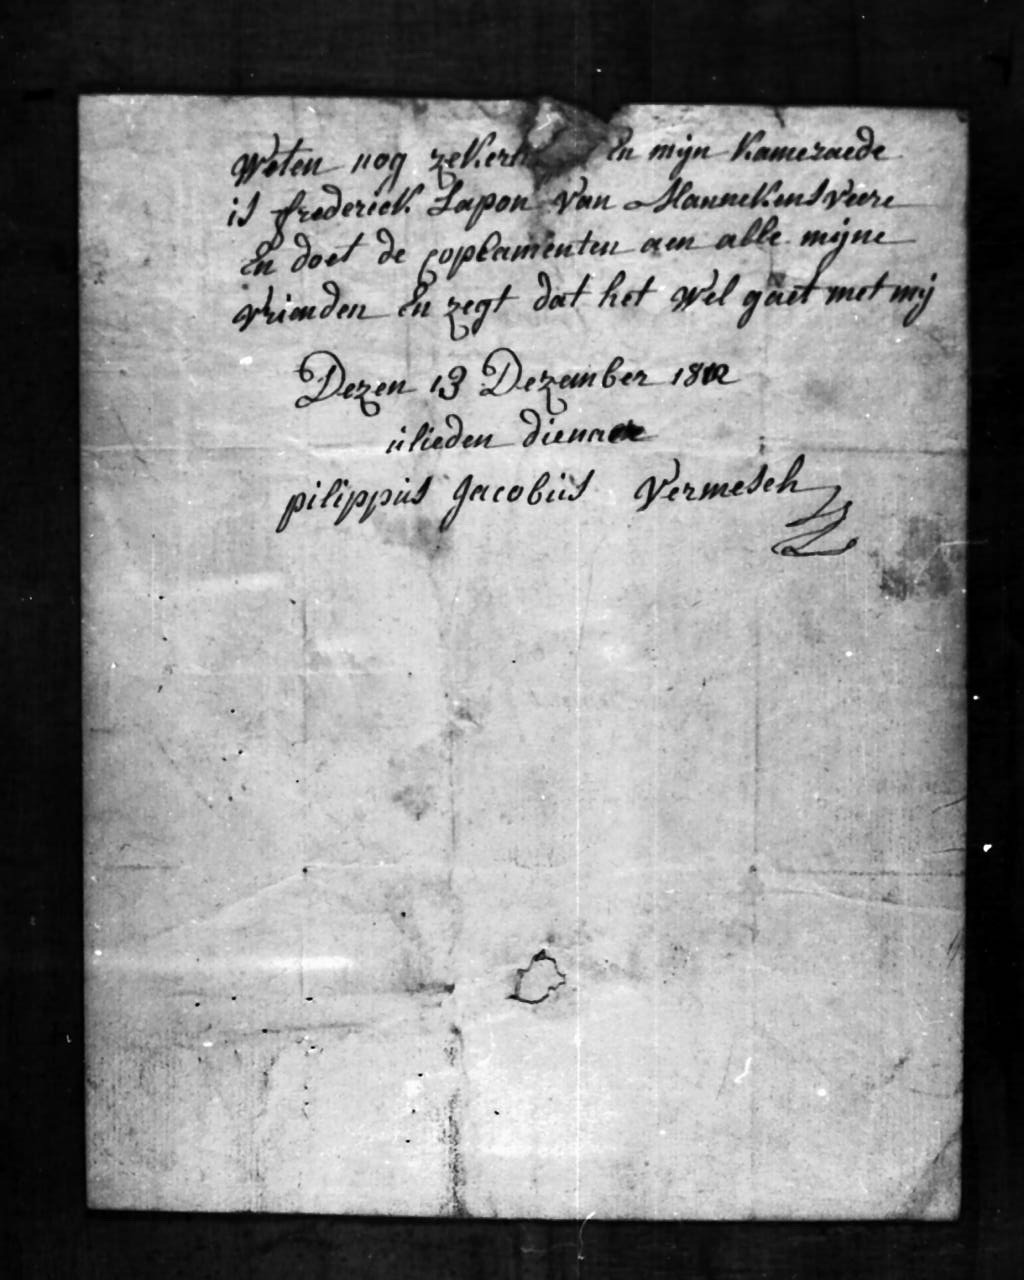 Weten nog En mijn Kameraede
is frederick Lapon Van Mannekensveere
En doet de coplamenten aen alle mijne
vrienden En zegt dat het Wel gaet met mij
Dezen 13 Dezember 1812
ulieden dienaer
pilippus Jacobus Vermesch